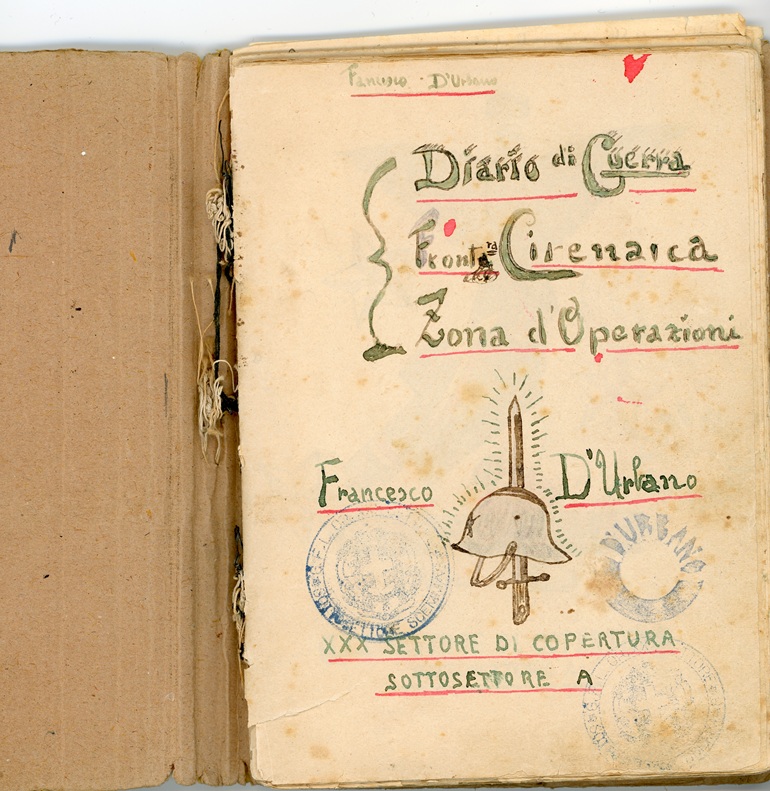 Francesco D'Urbano
Diario di Guerra
Cirenaica
Zona d'Operazioni
Francesco D'Urbano
D'URBANO
XXX SETTORE DI COPERTURA
SOTTOSETTORE A